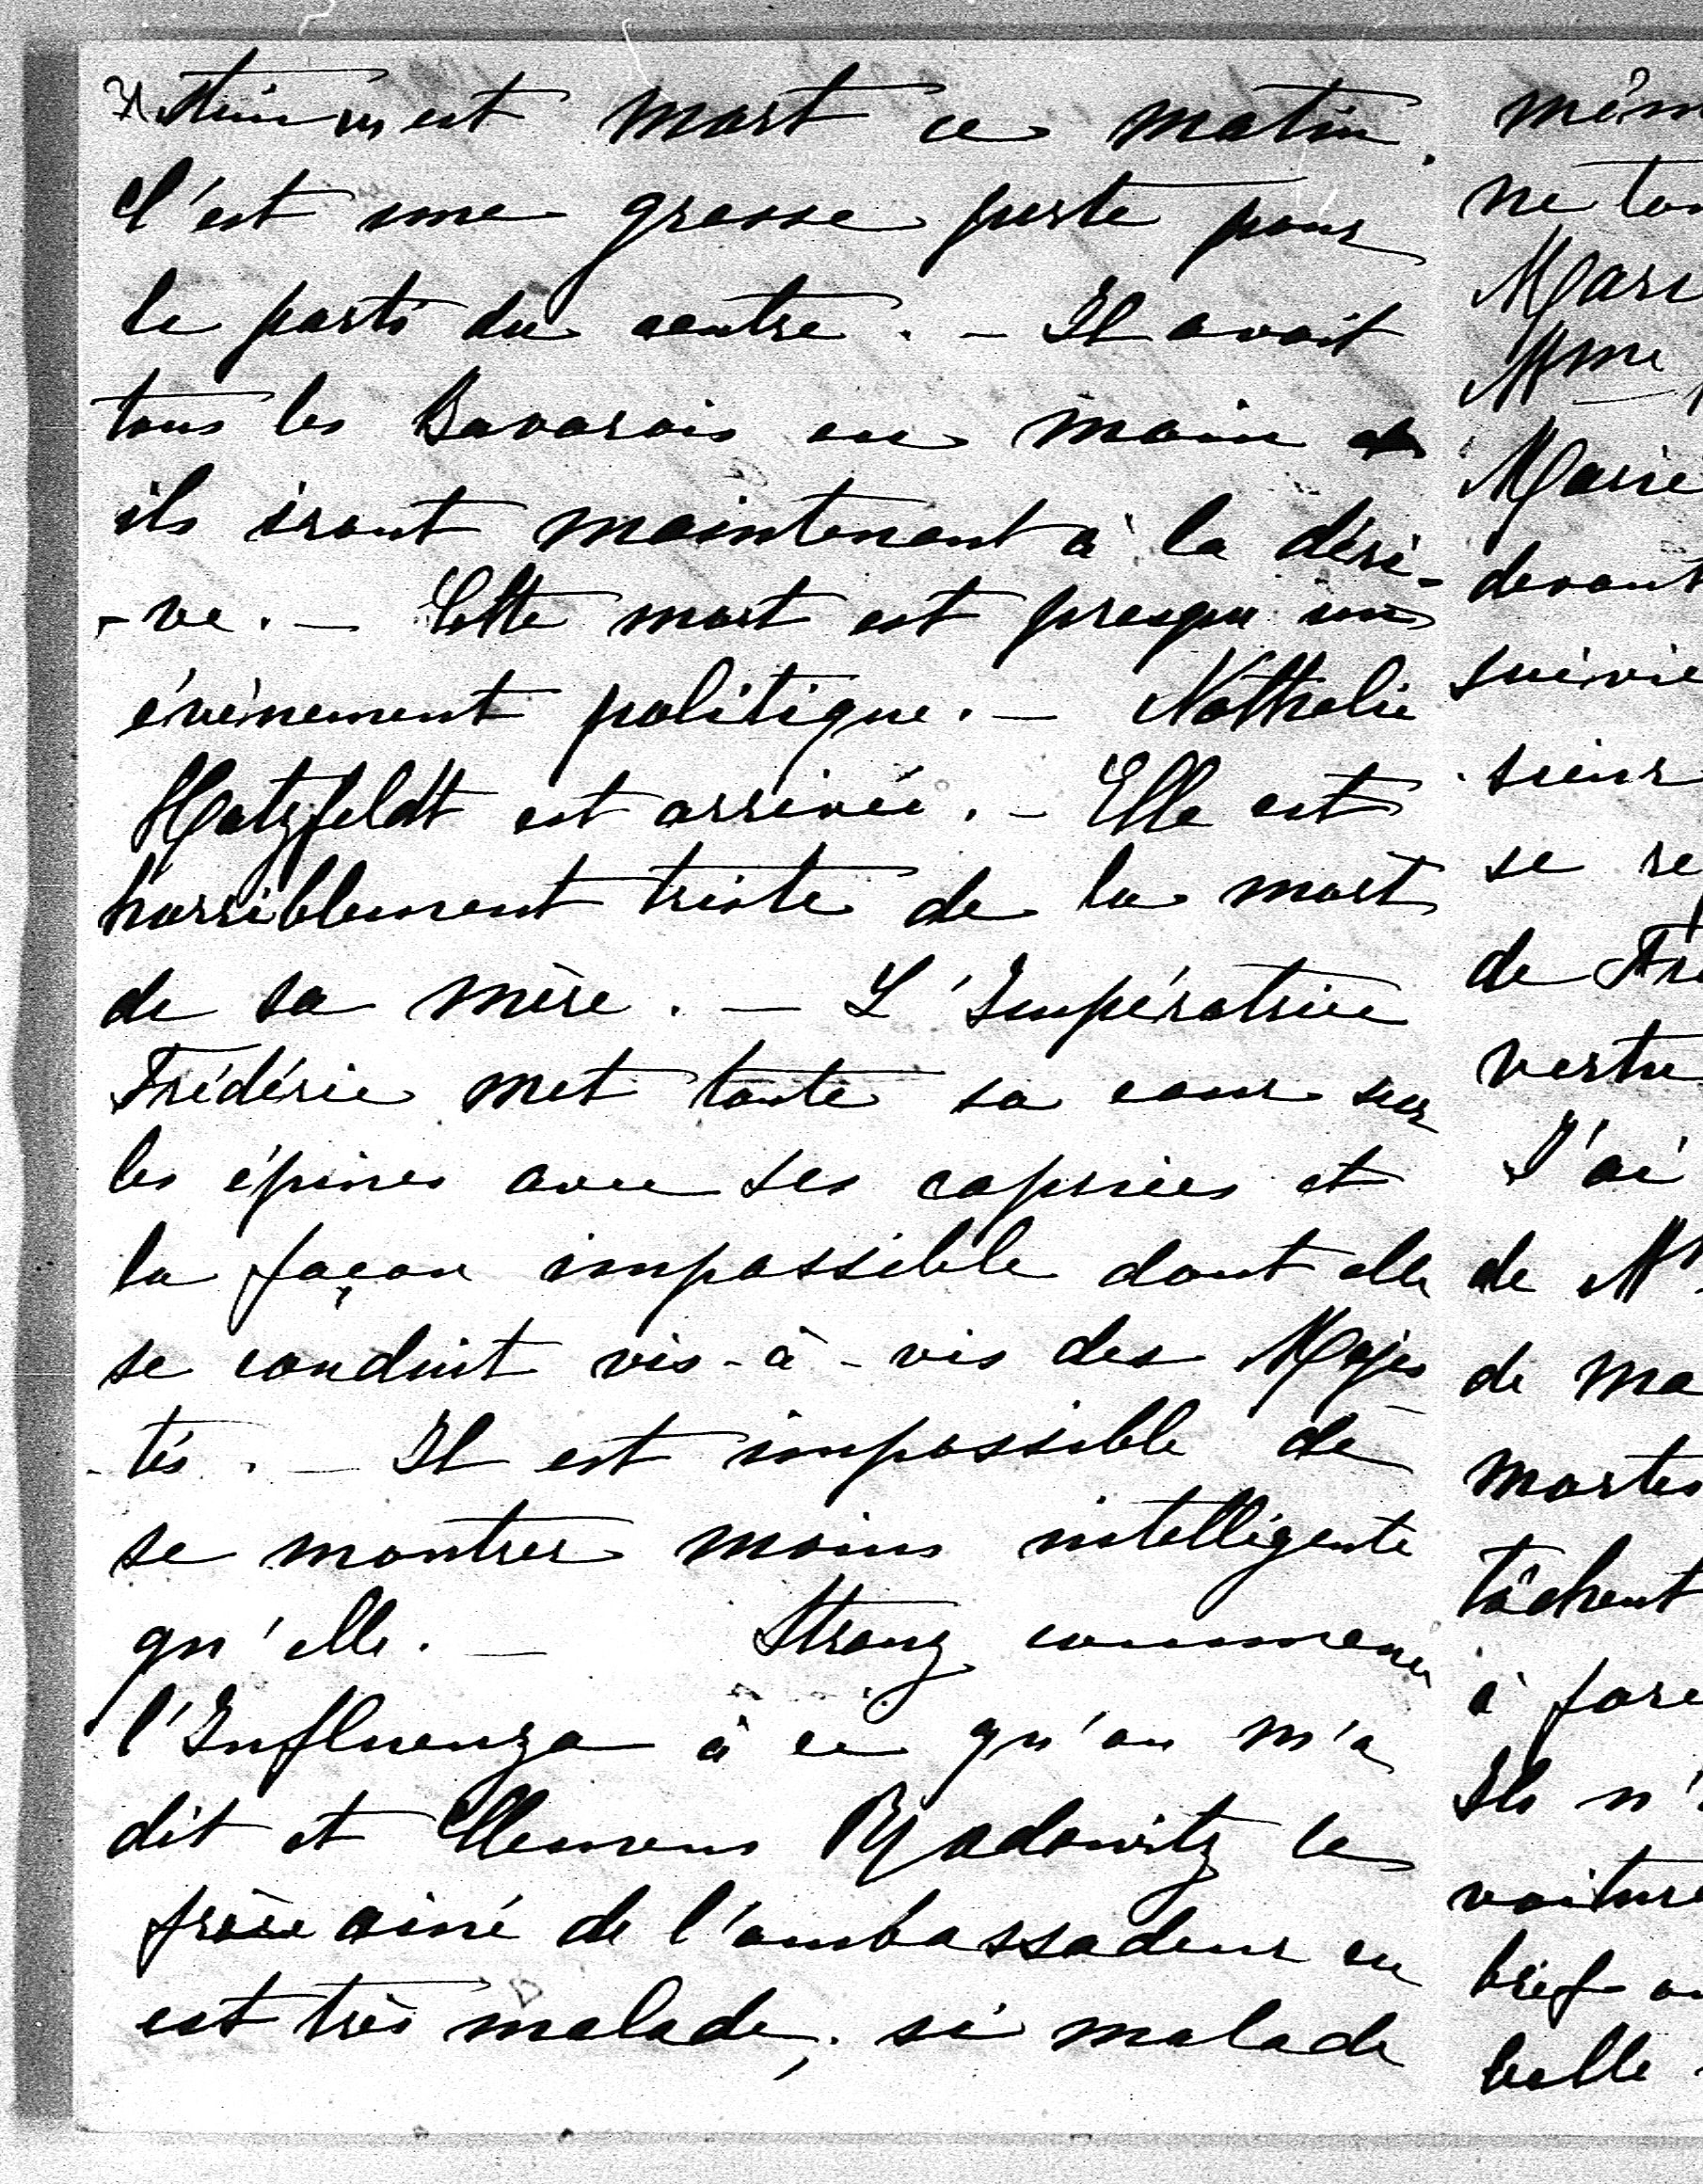 est mort ce matin.
C'est une grosse perte pour
le parti du centre. – Il avait
tous les Bavarois en main et
ils iront maintenant à la déri-
-ve. – Cette mort est presqu'un
évènement politique. – Nathalie
Hatzfeldt est arrivée. – Elle est
horriblement triste de la mort
de sa mère. – L'Impératrice
Frédéric met toute sa cour sur
les épines avec ses caprices et
la façon impossible dont elle
se conduit vis-à-vis des Majes
-tés. – Il est impossible de
se montrer moins intelligente
qu'elle. – Stranz commence
l'Influenza à ce qu'on m'a
dit et Clemens Radowitz le
frère ainé de l'ambassadeur en
est très malade, si malade
mêm
ne
Mari
Mme
Marie
devant
suivie
sieur
se re
de Fré
vertu
J'ai
de M
de ma
mortes
tâchent
à
Ils n'
voiture
bref
belle